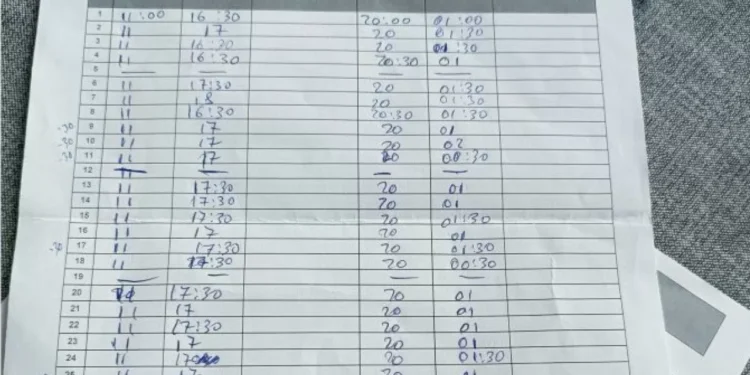 1 11:00 16:30 20:00 01:00
2 11 17 20 01:30
3 11 16:30 20 01:30
4 11 16:30 20:30 01
5 — — — —
6 11 17:30 20 01:30
7 11 18 20 01:30
8 11 16:30 20:30 01:30
-30 9 11 17 20 01
-30 10 11 17 20 02
-30 11 11 17 20 00:30
12 — — — —
13 11 17:30 20 01
14 11 17:30 20 01
15 11 17:30 20 01:30
16 11 17 20 01
-30 17 11 17:30 20 01:30
18 11 17:30 20 00:30
19 — — — —
20 11 17:30 20 01
21 11 17 20 01
22 11 17:30 20 01
23 11 17 20 01
24 11 17 20 01:30
11 17 20 01